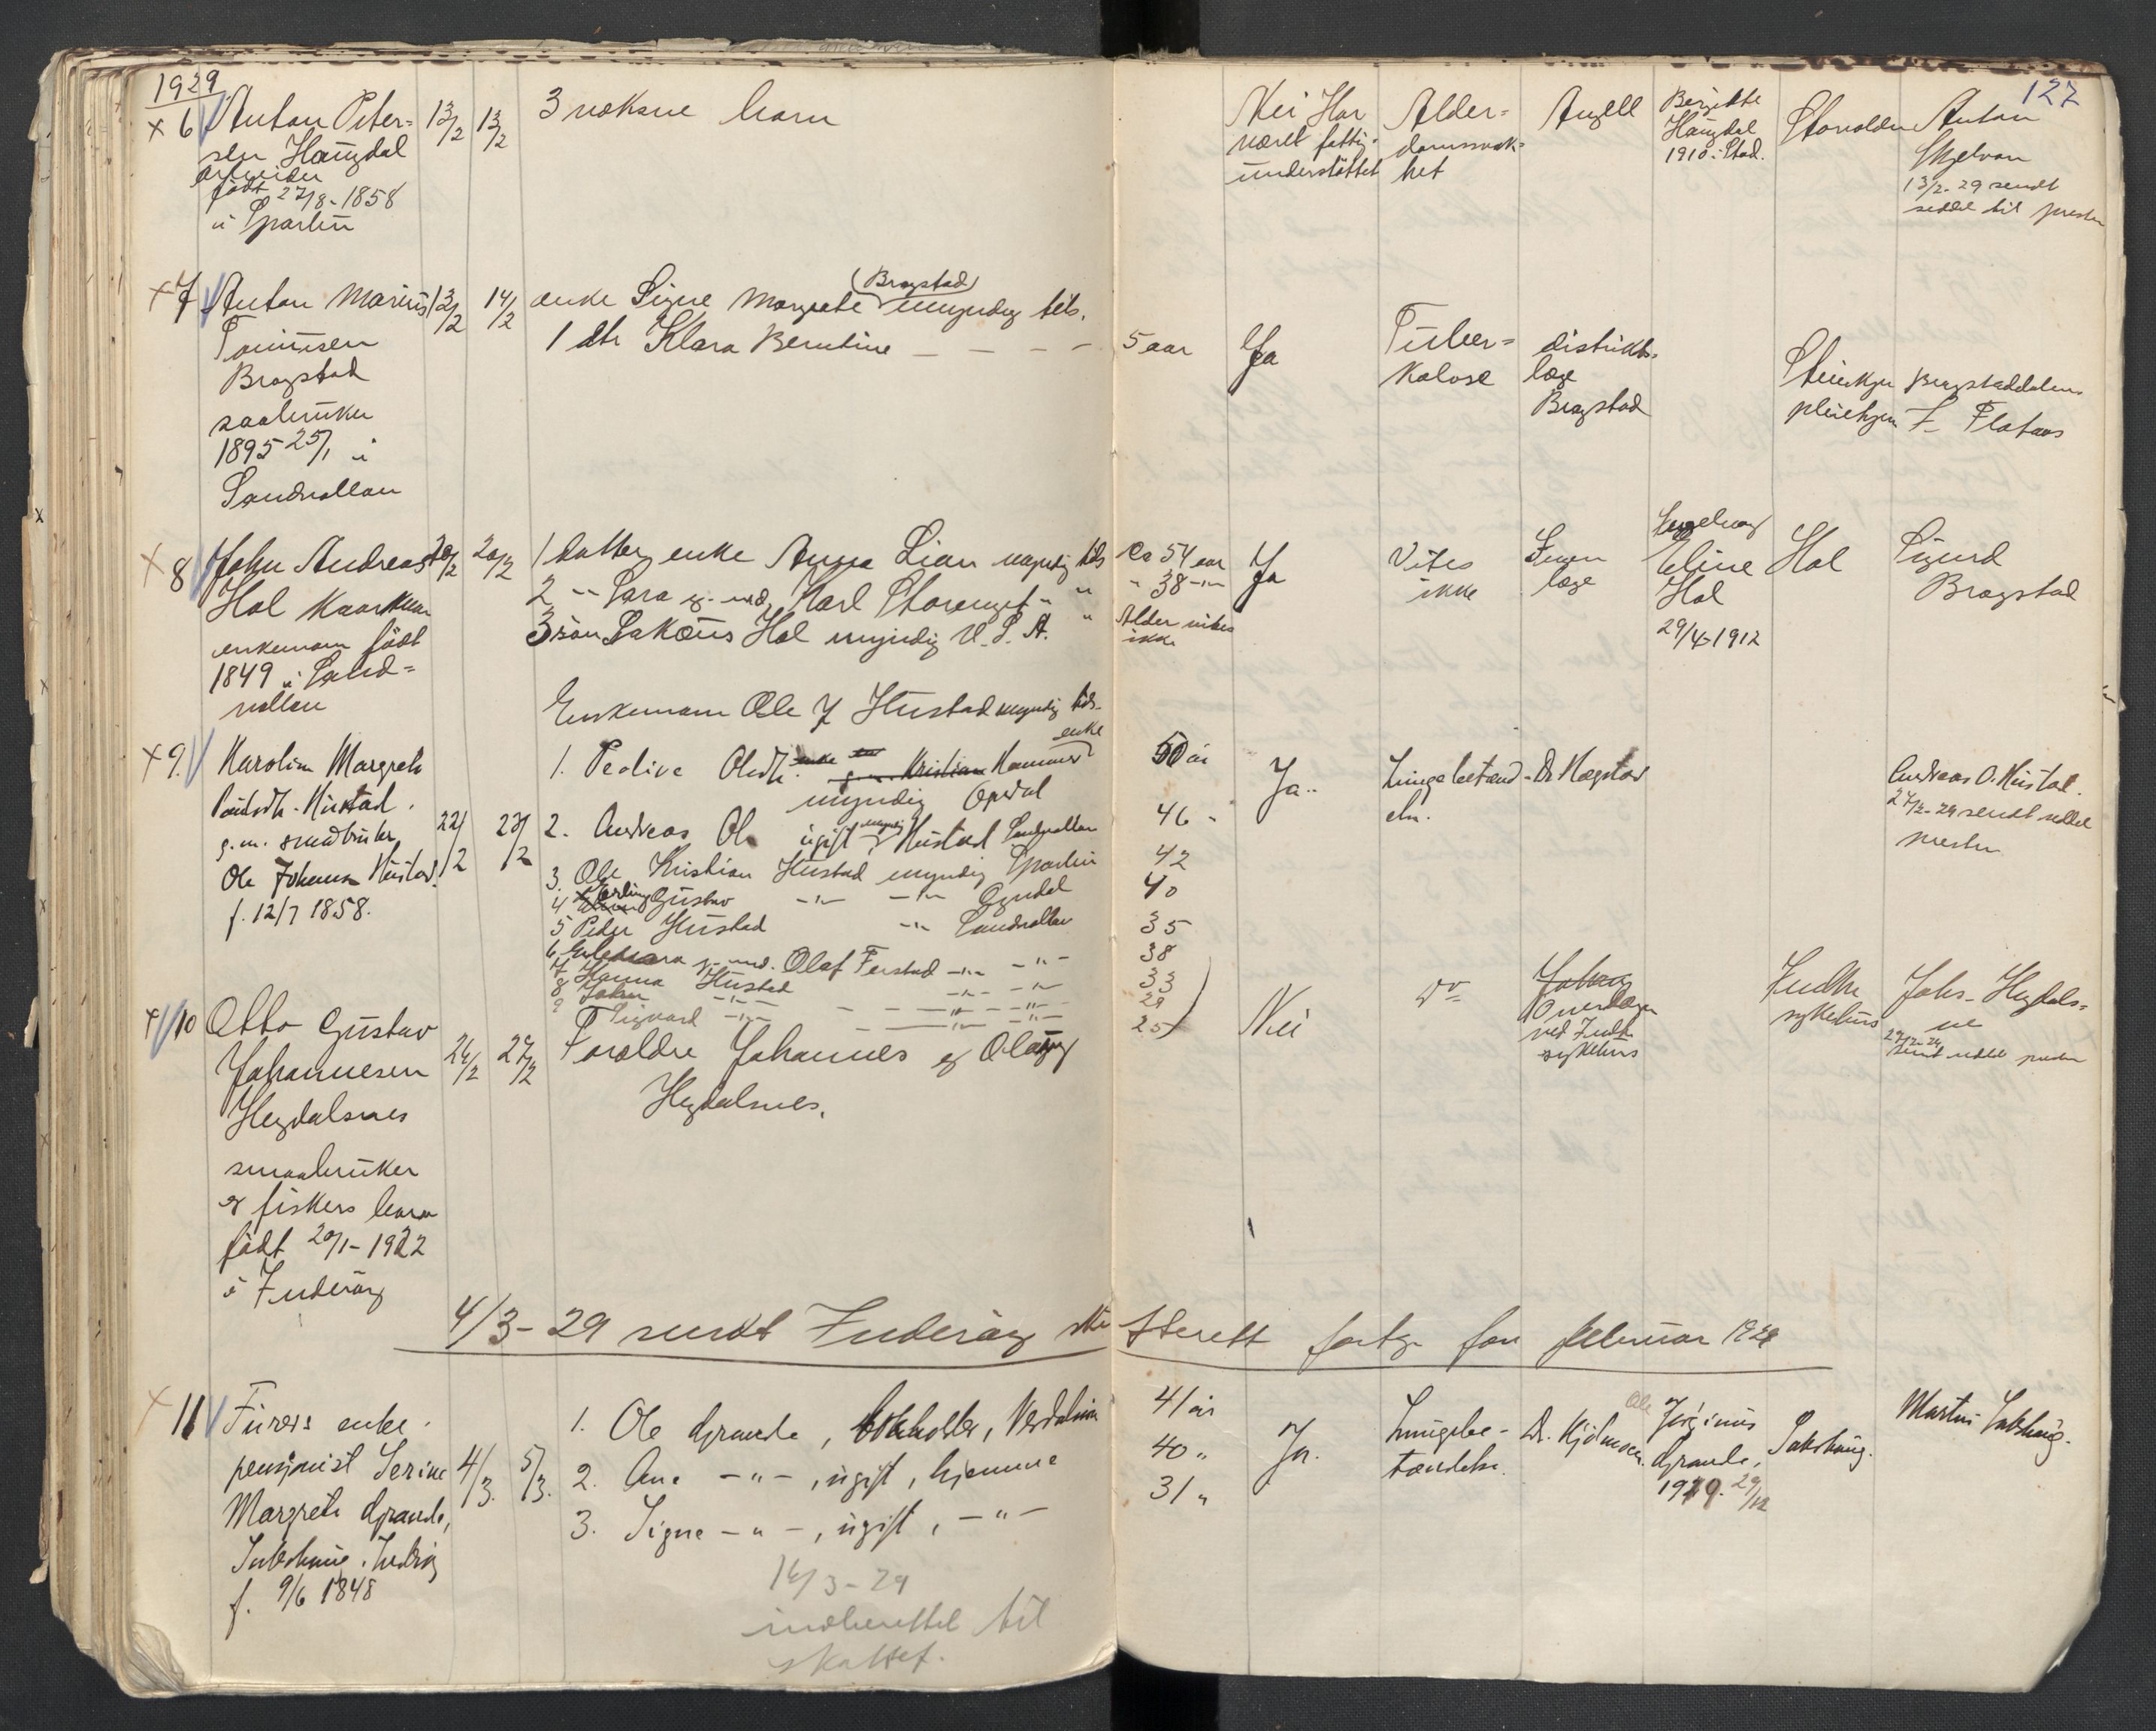 1929
127
x 6 Anton Peter=
sen Haugdal
arbeider
født 27/8-1858
i Sparbu
13/2
13/2
3 voksne barn
Nei Har
været fattig-
understøttet
Alder=
domssvak=
het
Angell
Bergitte
Haugdal
1910 i Stod.
Anton
Skjelvan
13/2-29 sendt
seddel til presten
x 7 Anton Marius
Bragstad
1895 25/1 i
Sandvollan
13/2
14/2
enke Signe Margrete (Bragstad) myndig tils.
1 dtr Klara Berntine - - - -
5 aar
Ja
Tuber=
kolose
distrikts-
læge
Bragstad
Steinkjer
pleiehjem
Bragstaddalen
F. Flataas
x 8 John Andreas
Hol Kaarmann
enkemann født
1849 i Sand=
vollan
20/2
20/2
1 datter enke Anna Lian myndig tils
2 -"- Sara g. md. Karl Storenget " "
3 søn Lakæus Hol myndig U.S.A. "
ca 54 aar
" 38 -"-
Alder vites
ikke
Ja
Vites
ikke
Ingen
læge
Ingeborg
Eline
Hol
29/4-1912
Hol
Sigurd
Bragstad
Enkemann Ole J Hustad myndig tils.
x 9. Karolin Margrete
Paulsdtr. Hustad.
g.m. småbruker
Ole Johannes Hustad.
f. 12/7 1858.
22/2
23/2
1. Pedive Olsdtr. enke Kristian Hammer enke
myndig Opdal
2. Andreas Ols ugift myndig Hustad Sandvollan
3. Ole Kristian Hustad myndig Sparbu
4 Erling Gustav -"- -"- Ogndal
5 Peder Hustad -"- Sandvollan
6. g. md. Olaf Ferstad -"- -"-
7 Hanna Hustad -"- -"-
8 Johan -"- - -"- -"-
9 Sigvard -"- - -"- -"-
50 år
46 -
42
40
35
38
33
29
25
Ja..
Lungebetænd-
else.
Dr Hægstad
Andreas O. Hustad.
27/2-29 sendt seddel
presten
x 10 Otto Gustav
Johannesen
Heydalsnes
smaabruker
og fiskers barn
født 20/1-1922
i Inderøy
26/2
27/2
Foreldre Johannes og Olaug
Heydalsnes.
Nei
Overlægen
ved Indh.
sykehus
Indhr
sykehus
Johs. Heydals=
nes
27/2-29
sendt seddel presten
4/3-29 sendt Inderøy skr
sterett fortg for februar 1929
x 11 Furers enke.
pensjonist Serine
Margrete Grande,
Sakshaug. Inderøy
f. 9/6 1848
4/3.
5/3.
1. Ole Grande, bokholder, Verdalen
2. Ane -"-, ugift, hjemme
3. Signe -"-, ugift, -"-
41 år
40 "
31 "
Ja.
Lungebe-
tændelse.
Dr. Kjølmoen.
Ole
Jørginus
Grande,
1919. 29/12
Sakshaug.
Martin Sakshaug.
16/3-29
indberettet til
skattef.